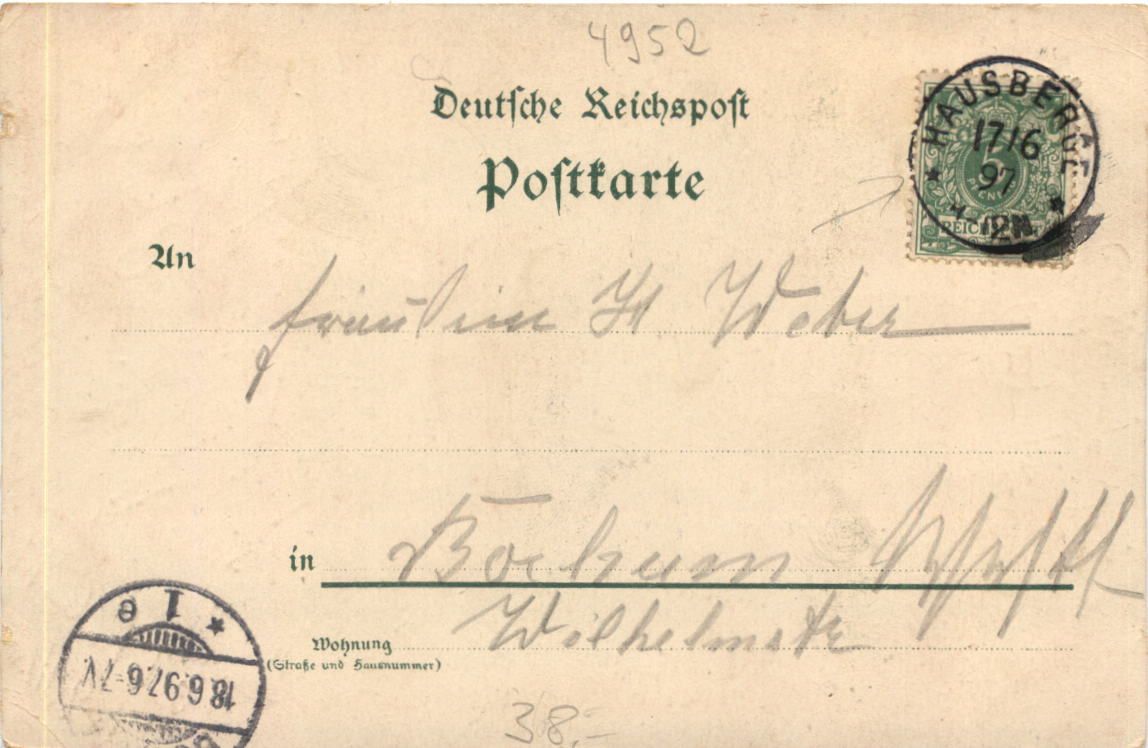 4952
Deutsche Reichspost
Postkarte
HAUSBERGE
17/6
97
5
REICHSPOST
An
Fräulein H. Weber
in Bochum
Wilhelmstr
Wohnung
(Straße und Hausnummer)
1 e
18.6.97.6-7V.
38.-